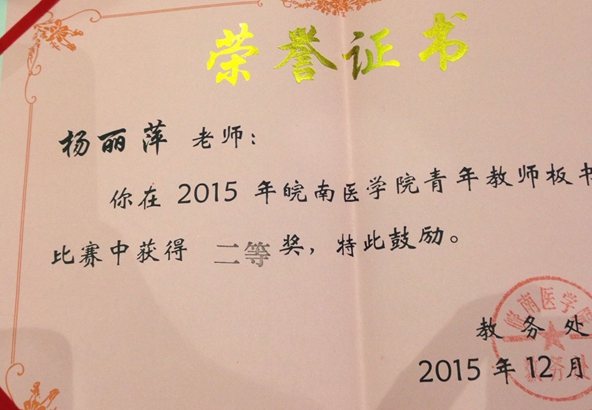 荣誉证书
杨丽萍 老师：
你在 2015 年皖南医学院青年教师板书
比赛中获得 二等奖，特此鼓励。
教务处
2015年12月
皖南医学院
教务处